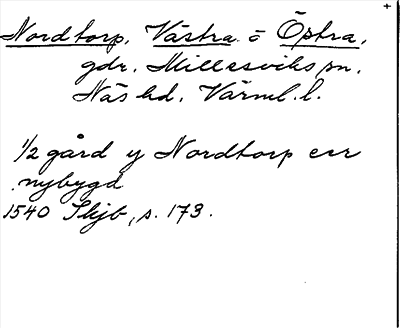 Nordtorp, Västra o Östra,
gdr, Millesviks sn,
Näs hd, Värml. l.
1/2 gård y Nordtorp err
nybygd
1540 Skjb, s. 173.